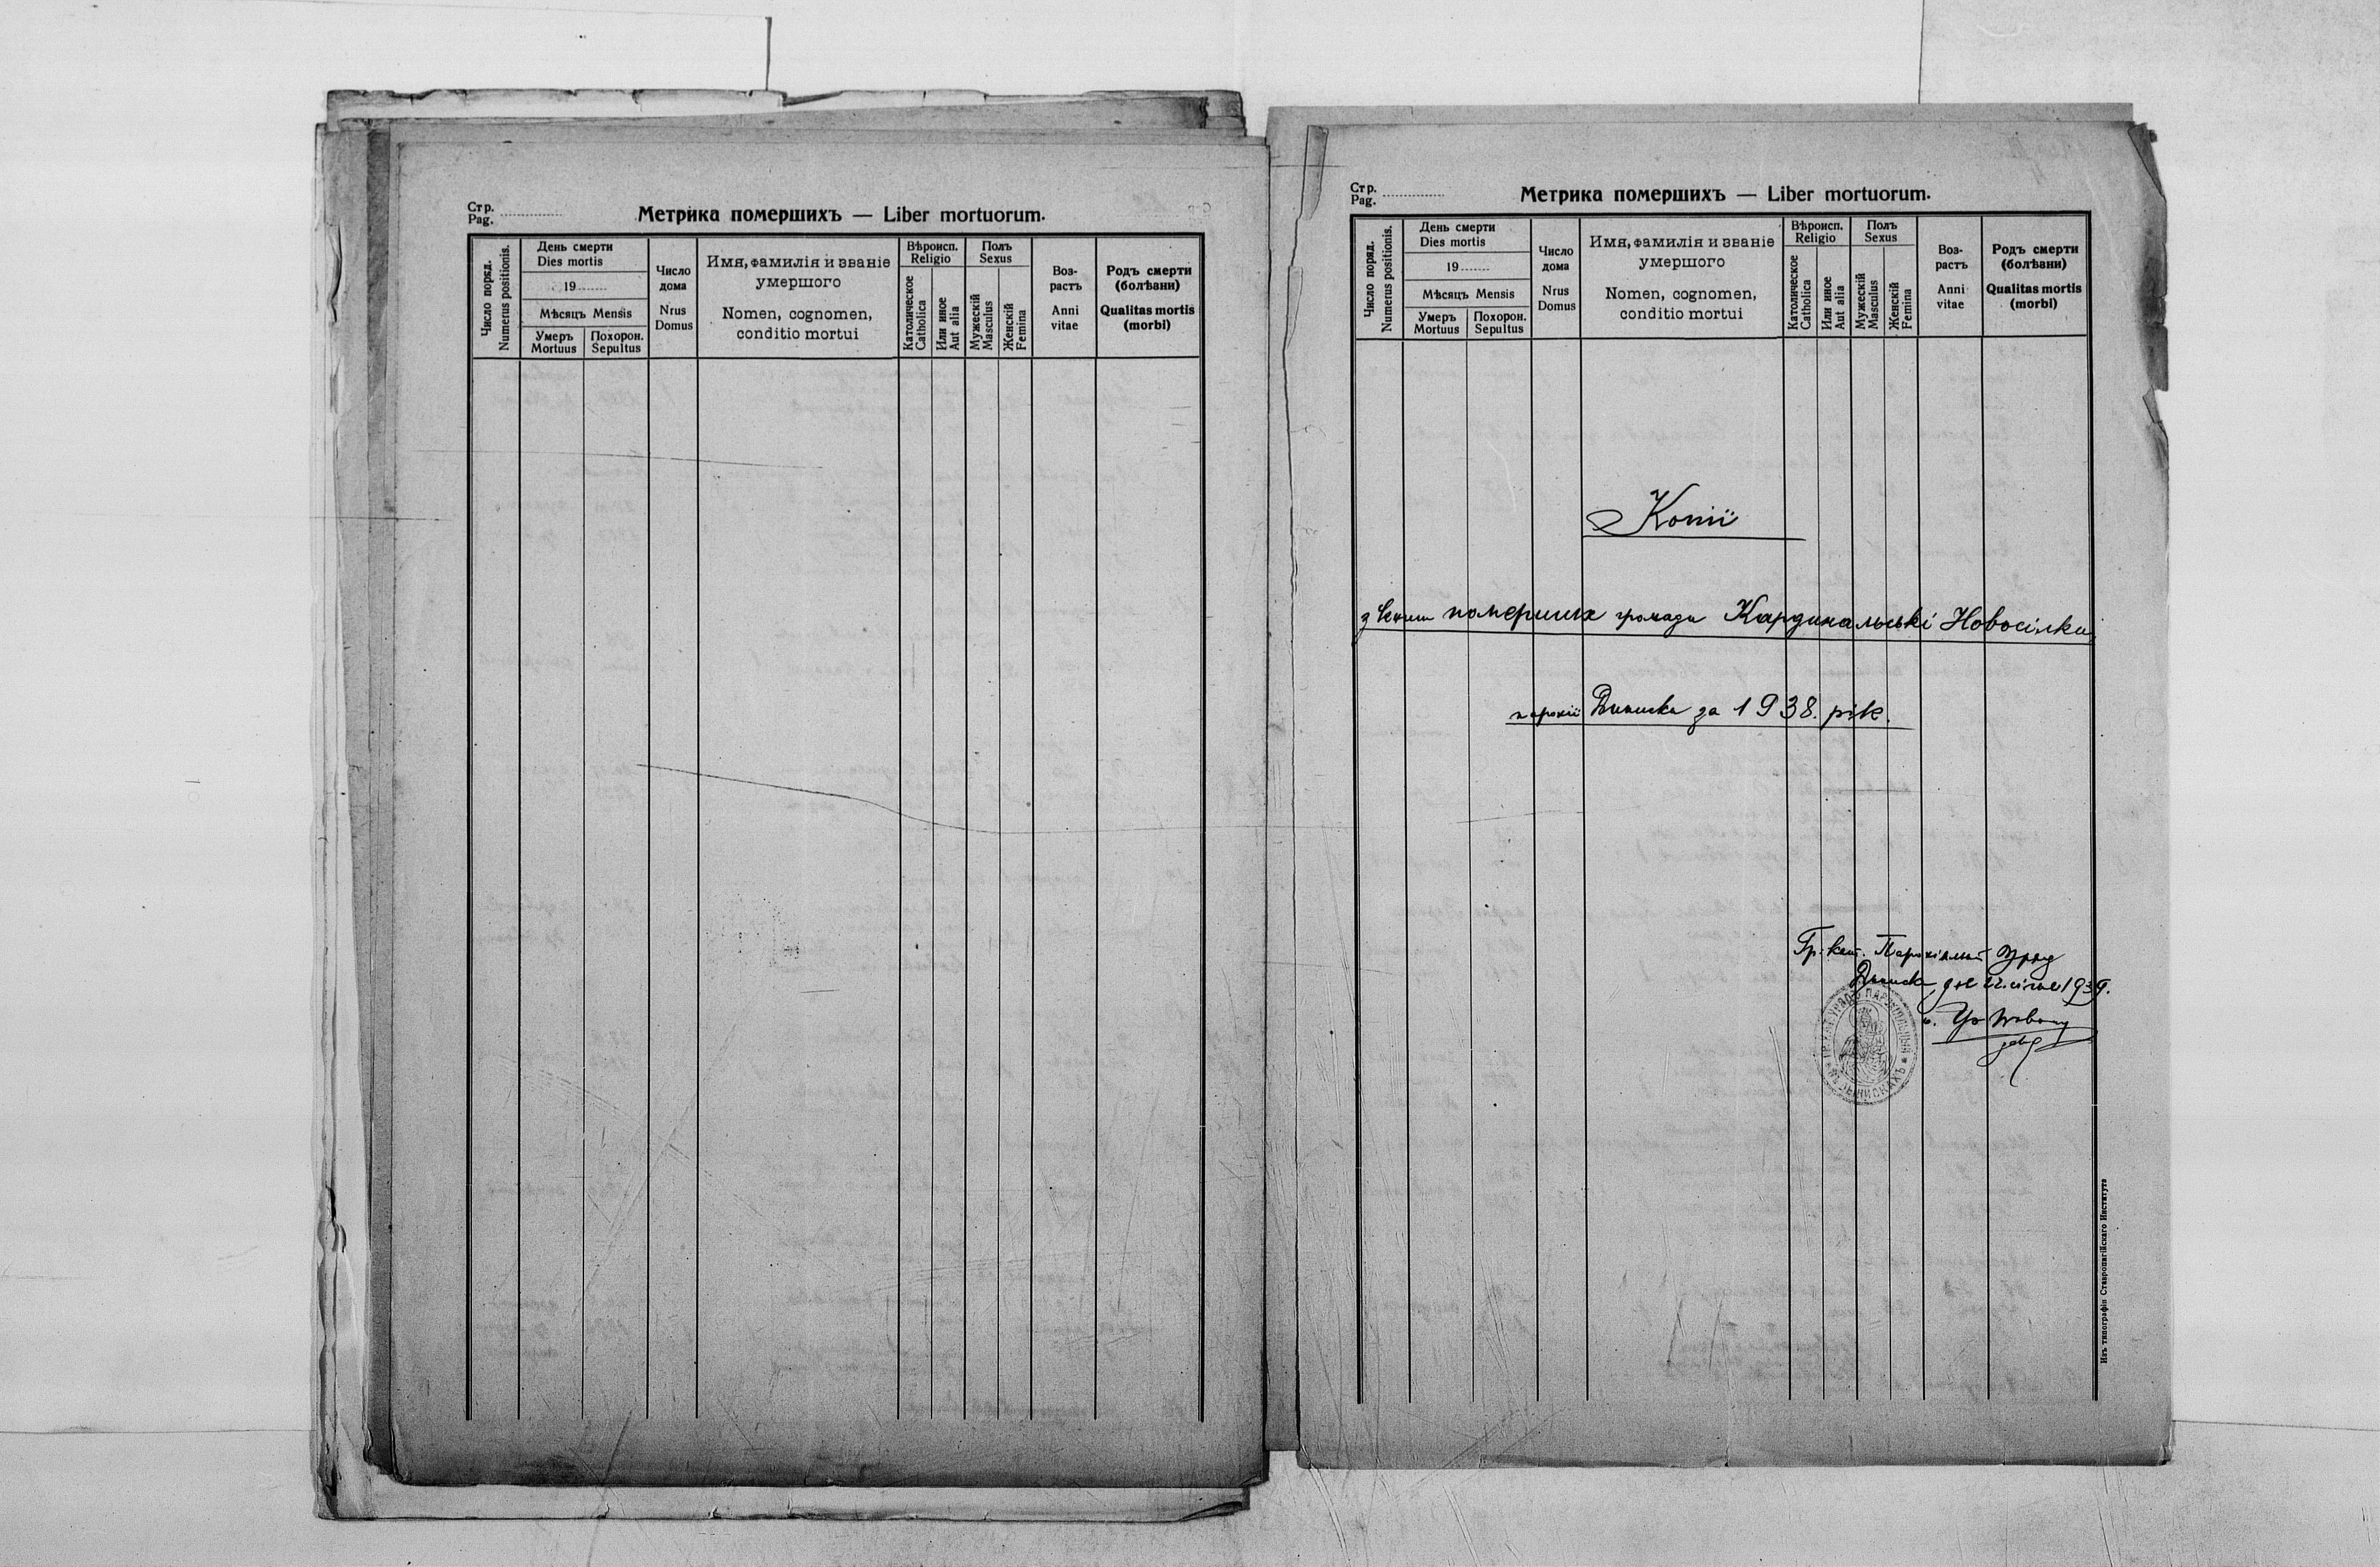 Стр.
Pag.
Метрика помершихъ — Liber mortuorum.
Число поряд.
Numerus positionis.
День смерти
Dies mortis
19
Мѣсяцъ Mensis
Умеръ
Mortuus
Похорон.
Sepultus
Число
дома
Nrus
Domus
Имя, фамилія и званіе
умершого
Nomen, cognomen,
conditio mortui
Вѣроисп.
Religio
Католическое
Catholica
Или иное
Aut alia
Полъ
Sexus
Мужескій
Masculus
Женскій
Femina
Воз-
растъ
Anni
vitae
Родъ смерти
(болѣзни)
Qualitas mortis
(morbi)
Стр.
Pag.
Метрика помершихъ — Liber mortuorum.
Число поряд.
Numerus positionis.
День смерти
Dies mortis
19
Мѣсяцъ Mensis
Умеръ
Mortuus
Похорон.
Sepultus
Число
дома
Nrus
Domus
Имя, фамилія и званіе
умершого
Nomen, cognomen,
conditio mortui
Вѣроисп.
Religio
Католическое
Catholica
Или иное
Aut alia
Полъ
Sexus
Мужеский
Masculus
Женскій
Femina
Воз-
растъ
Anni
vitae
Родъ смерти
(болѣзни)
Qualitas mortis
(morbi)
Копії
з книги померших громади Кардинальські Новосілки,
парохії Диниска за 1938. рік.
Гр. кат. Парохіяльний Уряд
Диниска, дня 1939.
Изъ типографіи Ставропигійскаго Института